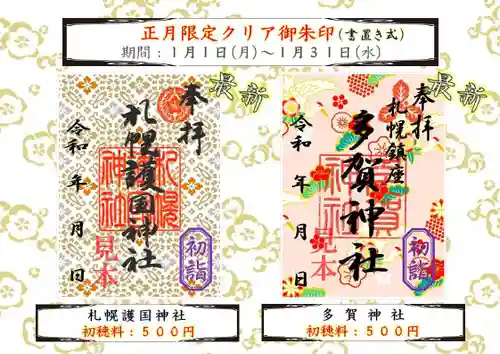 正月限定クリア御朱印(書置き式)
期間：１月１日(月)～１月３１日(水)
最新
奉拝
札幌護国神社
令和 年 月 日
初詣
見本
最新
奉拝
札幌鎮座
多賀神社
令和 年 月 日
初詣
見本
札幌護国神社
初穂料：５００円
多賀神社
初穂料：５００円